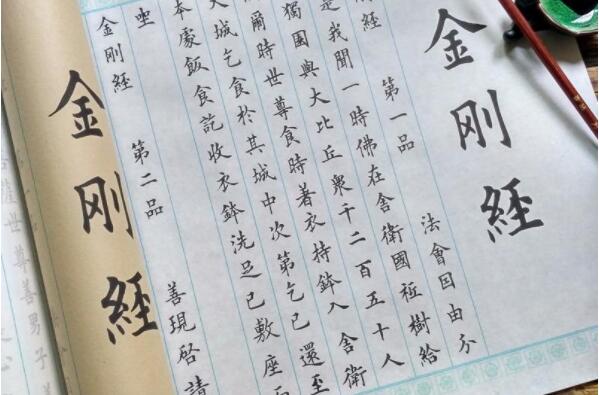 金刚經
經 第一品 法會因由分
是我聞一時佛在舍衛國祇樹給
獨園與大比丘眾千二百五十人
爾時世尊食時著衣持鉢入舍衛
大城乞食於其城中次第乞已還至
本處飯食訖收衣鉢洗足已敷座而
坐
金剛經 第二品 善現啓請
金刚經
薩世尊善男子